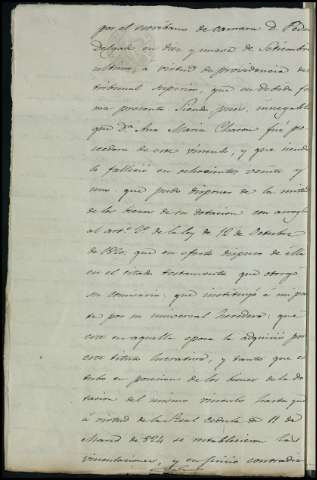 por el escribano de camara D. Pedro
Delgado en dos y nueve de Setiembre
ultimo, a virtud de providencia del
tribunal superior, que en debida for
ma presento. Siendo pues, innegable
que Dª Ana Maria Chacon fué po
seedora de este vinculo, y que siendo
lo falleció en ochocientos veinte y
uno, que pudo disponer de la mitad
de los bienes de su dotacion con arreglo
al artº 2º de la ley de 12 de Octubre
de 1820, que en efecto dispuso de ella
en el citado testamento que otorgó
en que instituyó á mi par
te por su universal heredera: que
este en aquella epoca la adquirió por
este titulo lucrativo, y tanto que es
tubo en posesion de los bienes de la do
tacion del mismo vinculo hasta que
á virtud de la Real Cedula de 11 de
Marzo de 824 se restablecieron las
vinculaciones, y en juicio contradic